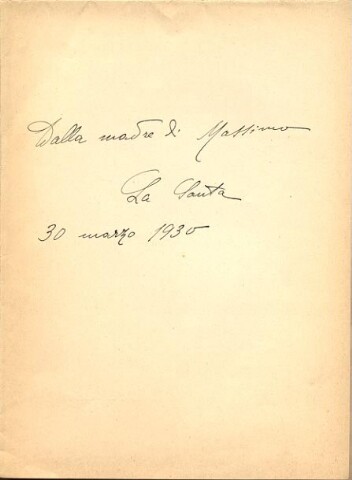 Dalla madre di Massimo
La Santa
30 marzo 1930